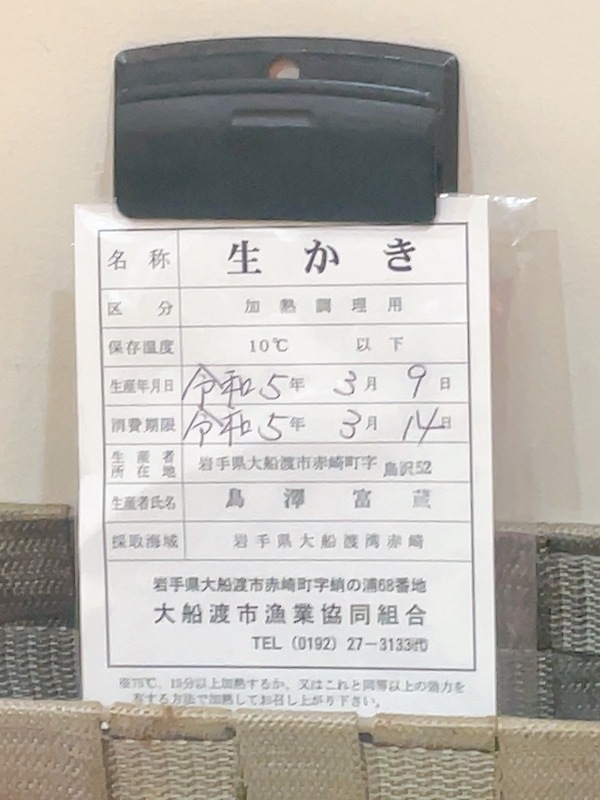 名称 生かき
区分 加熱調理用
保存温度 10℃ 以下
生産年月日 令和5年 3月 9日
消費期限 令和5年 3月 14日
生産者所在地 岩手県大船渡市赤崎町字 鳥沢52
生産者氏名 鳥澤富蔵
採取海域 岩手県大船渡湾赤崎
岩手県大船渡市赤崎町字蛸の浦68番地
大船渡市漁業協同組合
TEL (0192) 27-3133代
※75℃、15分以上加熱するか、又はこれと同等以上の効力を
有する方法で加熱してお召し上がり下さい。